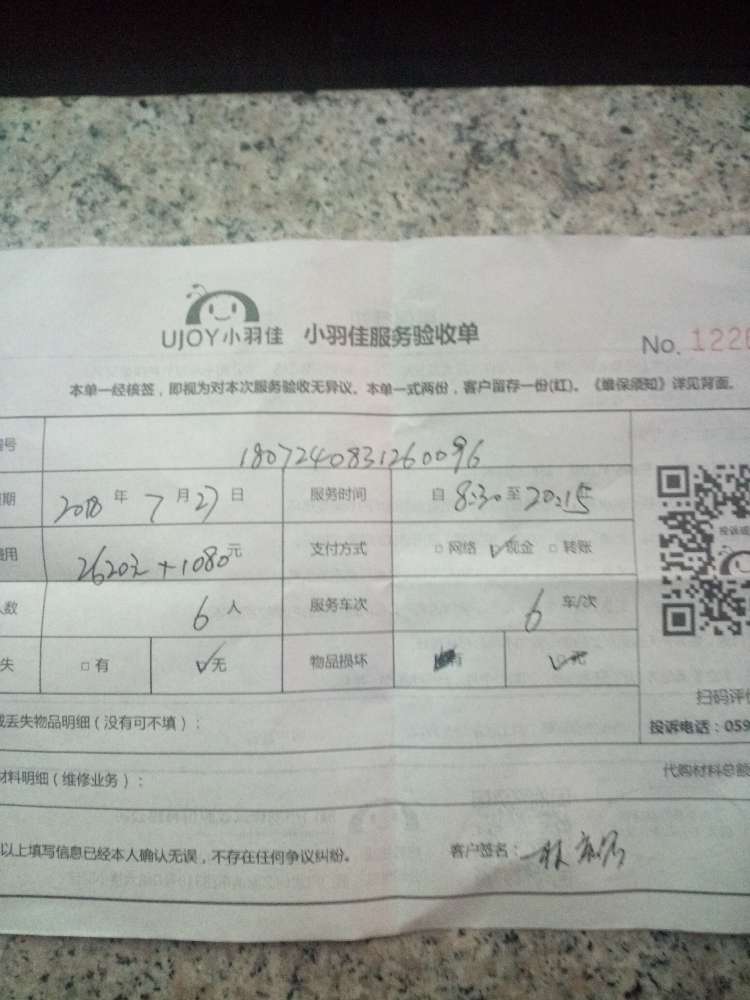 UJOY小羽佳 小羽佳服务验收单
No. 1226
本单一经核签，即视为对本次服务验收无异议。本单一式两份，客户留存一份(红)。《维保须知》详见背面。
号 1807240831260096
期 2018 年 7 月 27 日 服务时间 自 8:30 至 20:15
用 2620元+1080元 支付方式 □网络 ✓现金 □转账
人数 6 人 服务车次 6 车/次
失 □有 ✓无 物品损坏 有 ✓无
扫码评价
或丢失物品明细（没有可不填）：
投诉电话：059
材料明细（维修业务）：
代购材料总额
以上填写信息已经本人确认无误，不存在任何争议纠纷。 客户签名：林